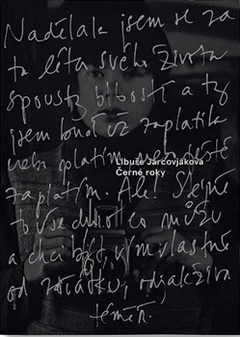 Nadělala jsem se za
ta léta svého života
spousty blbostí a ty
jsem buď už zaplatila
nebo platím nebo ještě
Libuše Jarcovjáková
Černé roky
zaplatím. Ale! Stejně
to všechno co můžu
a chci být, vím vlastně
od začátku, odjakživa
téměř.